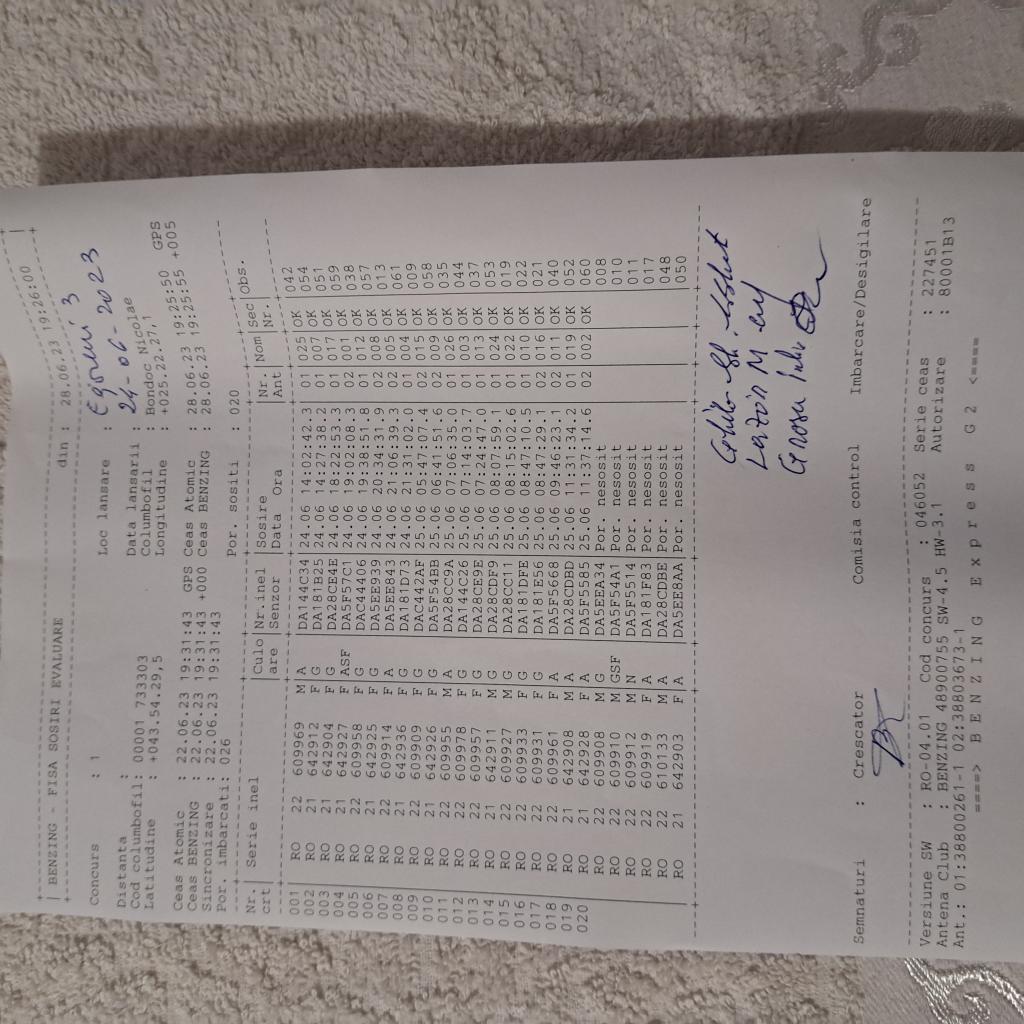 BENZING - FISA SOSIRI EVALUARE din : 28.06.23 19:26:00
Concurs : 1 Loc lansare : Egoreni 3
Distanta : Data lansarii : 24-06-2023
Cod columbofil: 00001 733303 Columbofil : Bondoc Nicolae
Latitudine : +043.54.29,5 Longitudine : +025.22.27,1
GPS
Ceas Atomic : 22.06.23 19:31:43 GPS Ceas Atomic : 28.06.23 19:25:50
Ceas BENZING : 22.06.23 19:31:43 +000 Ceas BENZING : 28.06.23 19:25:55 +005
Sincronizare : 22.06.23 19:31:43
Por. imbarcati: 026 Por. sositi : 020
Nr. Serie inel Culo Nr.inel Sosire Nr Nom Sec Obs.
crt are Senzor Data Ora Ant Nr.
001 RO 22 609969 M A DA144C34 24.06 14:02:42.3 01 025 OK 042
002 RO 21 642912 F G DA181B25 24.06 14:27:38.2 01 007 OK 054
003 RO 21 642904 F G DA28CE4E 24.06 18:22:53.3 01 017 OK 051
004 RO 21 642927 F ASF DA5F57C1 24.06 19:02:08.3 02 001 OK 059
005 RO 22 609958 F G DAC44406 24.06 19:38:51.8 01 012 OK 038
006 RO 21 642925 F G DA5EE939 24.06 20:34:31.9 02 008 OK 057
007 RO 22 609914 F A DA5EE843 24.06 21:06:39.3 02 005 OK 013
008 RO 21 642936 F G DA181D73 24.06 21:31:02.0 01 004 OK 061
009 RO 22 609909 F G DAC442AF 25.06 05:47:07.4 02 015 OK 009
010 RO 21 642926 F G DA5F54BB 25.06 06:41:51.6 02 009 OK 058
011 RO 22 609955 M A DA28CC9A 25.06 07:06:35.0 01 026 OK 035
012 RO 22 609978 F G DA144C26 25.06 07:14:03.7 01 003 OK 044
013 RO 22 609957 F G DA28CE9E 25.06 07:24:47.0 01 013 OK 037
014 RO 21 642911 M G DA28CDF9 25.06 08:07:59.1 01 024 OK 053
015 RO 22 609927 M G DA28CC11 25.06 08:15:02.6 01 022 OK 019
016 RO 22 609933 F G DA181DFE 25.06 08:47:10.5 01 010 OK 022
017 RO 22 609931 F G DA181E56 25.06 08:47:29.1 02 016 OK 021
018 RO 22 609961 F A DA5F5668 25.06 09:46:23.1 02 011 OK 040
019 RO 21 642908 M A DA28CDBD 25.06 11:31:34.2 01 019 OK 052
020 RO 21 642928 F A DA5F5585 25.06 11:37:14.6 02 002 OK 060
RO 22 609908 M G DA5EEA34 Por. nesosit 008
RO 22 609910 M GSF DA5F54A1 Por. nesosit 010
RO 22 609912 M N DA5F5514 Por. nesosit 011
RO 22 609919 F A DA181F83 Por. nesosit 017
RO 22 610133 M A DA28CDBE Por. nesosit 048
RO 21 642903 F A DA5EE8AA Por. nesosit 050
Semnaturi : Crescator Comisia control Imbarcare/Desigilare
Versiune SW : RO-04.01 Cod concurs : 046052 Serie ceas : 227451
Antena Club : BENZING 48900755 SW-4.5 HW-3.1 Autorizare : 80001B13
Ant.: 01:38800261-1 02:38803673-1
====> B E N Z I N G E x p r e s s G 2 <====